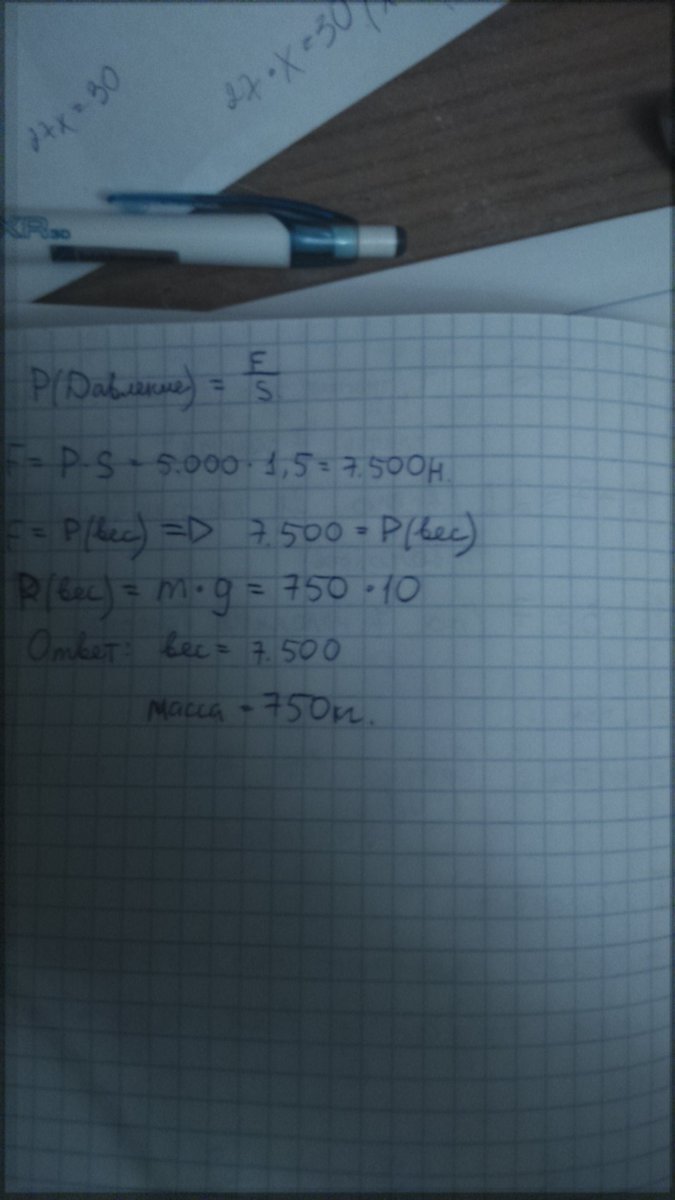 27x = 30
27 · x = 30
XR 30
P(Давление) = F/S
F = P · S = 5.000 · 1,5 = 7.500 Н.
F = P(вес) => 7.500 = P(вес)
P(вес) = m · g = 750 · 10
Ответ: вес = 7.500
масса = 750 кг.